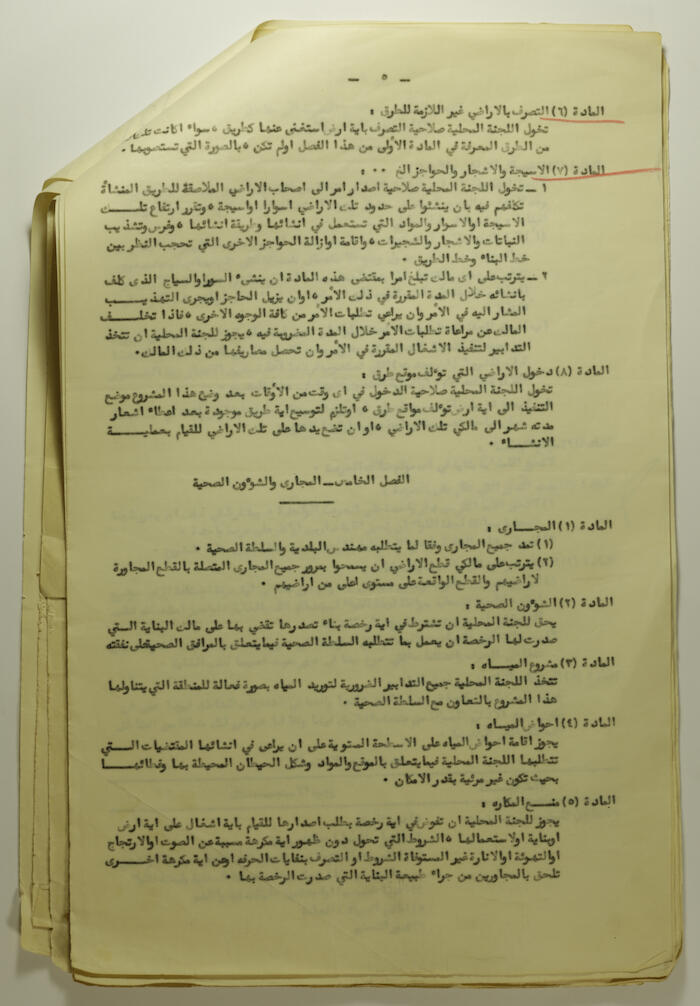 — ٥ —
المادة (٦) التصرف بالاراضي غير اللازمة للطرق :
تخول اللجنة المحلية صلاحية التصرف باية ارض استغني عنها كطريق ٠ سواء اكانت
من الطرق المعرفة في المادة الأولى من هذا الفصل اولم تكن ٠ بالصورة التي تستصوبها ٠
المادة (٧) الاسيجة والاشجار والحواجز الخ ٠٠ :
١ ــ تخول اللجنة المحلية صلاحية اصدار امر الى اصحاب الاراضي الملاصقة للطريق المنشأة
تكلفهم فيه بان ينشئوا على حدود تلك الاراضي اسوارا اواسيجة ٠ وتقرر ارتفاع تلــك
الاسيجة اوالاسوار والمواد التي تستعمل في انشائها وطريقة انشائها ٠ وغرس وتشذيب
النباتات والاشجار والشجيرات ٠ واقامة اوازالة الحواجز الاخرى التي تحجب النظر بين
خط البناء وخط الطريق ٠
٢ ــ يترتب على اى مالك تبلغ امرا بمقتضى هذه المادة ان ينشىء السور او السياج الذى كلف
بانشائه خلال المدة المقررة في ذلك الأمر ٠ اوان يزيل الحاجز اويجرى التهذيــب
المشار اليه في الأمر وان يراعي تطلبات الأمر من كافة الوجوه الاخرى ٠ فاذا تخلــف
المالك عن مراعاة تطلبات الأمر خلال المدة المضروبة فيه ٠ يجوز للجنة المحلية ان تتخذ
التدابير لتنفيذ الاشغال المقررة في الأمر وان تحصل مصاريفها من ذلك المالك٠
المادة (٨) دخول الاراضي التي تؤلف موقع طرق :
تخول اللجنة المحلية صلاحية الدخول في اى وقت من الأوقات بعد وضع هذا المشروع موضع
التنفيذ الى اية ارض تؤلف مواقع طرق ٠ اوتلزم لتوسيع اية طريق موجودة بعد اعطاء اشعار
مدته شهر الى مالكي تلك الاراضي ٠ او ان تضع يدها على تلك الاراضي للقيام بعمليــة
الانشــاء ٠
الفصل الخامس ــ المجارى والشؤون الصحية
المادة (١) المجــارى :
(١) تمد جميع المجارى وفقا لما يتطلبه مهندس البلدية والسلطة الصحية ٠
(٢) يترتب على مالكي قطع الاراضي ان يسمحوا بمرور جميع المجارى المتصلة بالقطع المجاورة
لاراضيهم والقطع الواقعة على مستوى اعلى من اراضيهم ٠
المادة (٢) الشؤون الصحية :
يحق للجنة المحلية ان تشترط في اية رخصة بناء تصدرها تقضي بها على مالك البناية التــي
صدرت لها الرخصة ان يعمل بما تتطلبه السلطة الصحية فيما يتعلق بالمرافق الصحية على نفقته
المادة (٣) مشروع الميــاه :
تتخذ اللجنة المحلية جميع التدابير الضرورية لتوريد المياه بصورة فعالة للمنطقة التي يتناولها
هذا المشروع بالتعاون مع السلطة الصحية ٠
المادة (٤) احواض الميــاه :
يجوز اقامة احواض المياه على الاسطحة المستوية على ان يراعى في انشائها المقتضيات التــي
تتطلبها اللجنة المحلية فيما يتعلق بالموقع والمواد وشكل الحيطان المحيطة بها وغطائهــا
بحيث تكون غير مرئية بقدر الامكان ٠
المادة (٥) منــع المكاره :
يجوز للجنة المحلية ان تفرض في اية رخصة يطلب اصدارها للقيام باية اشغال على اية ارض
اوبناية اولاستعمالها ٠ الشروط التي تحول دون ظهور اية مكرهة مسببة عن الصوت اوالارتجاج
اوالتهوئة اوالانارة غير المستوفاة الشروط او التصرف بنفايات الحرفه اوعن اية مكرهة اخــرى
تلحق بالمجاورين من جراء طبيعة البناية التي صدرت الرخصة بها ٠